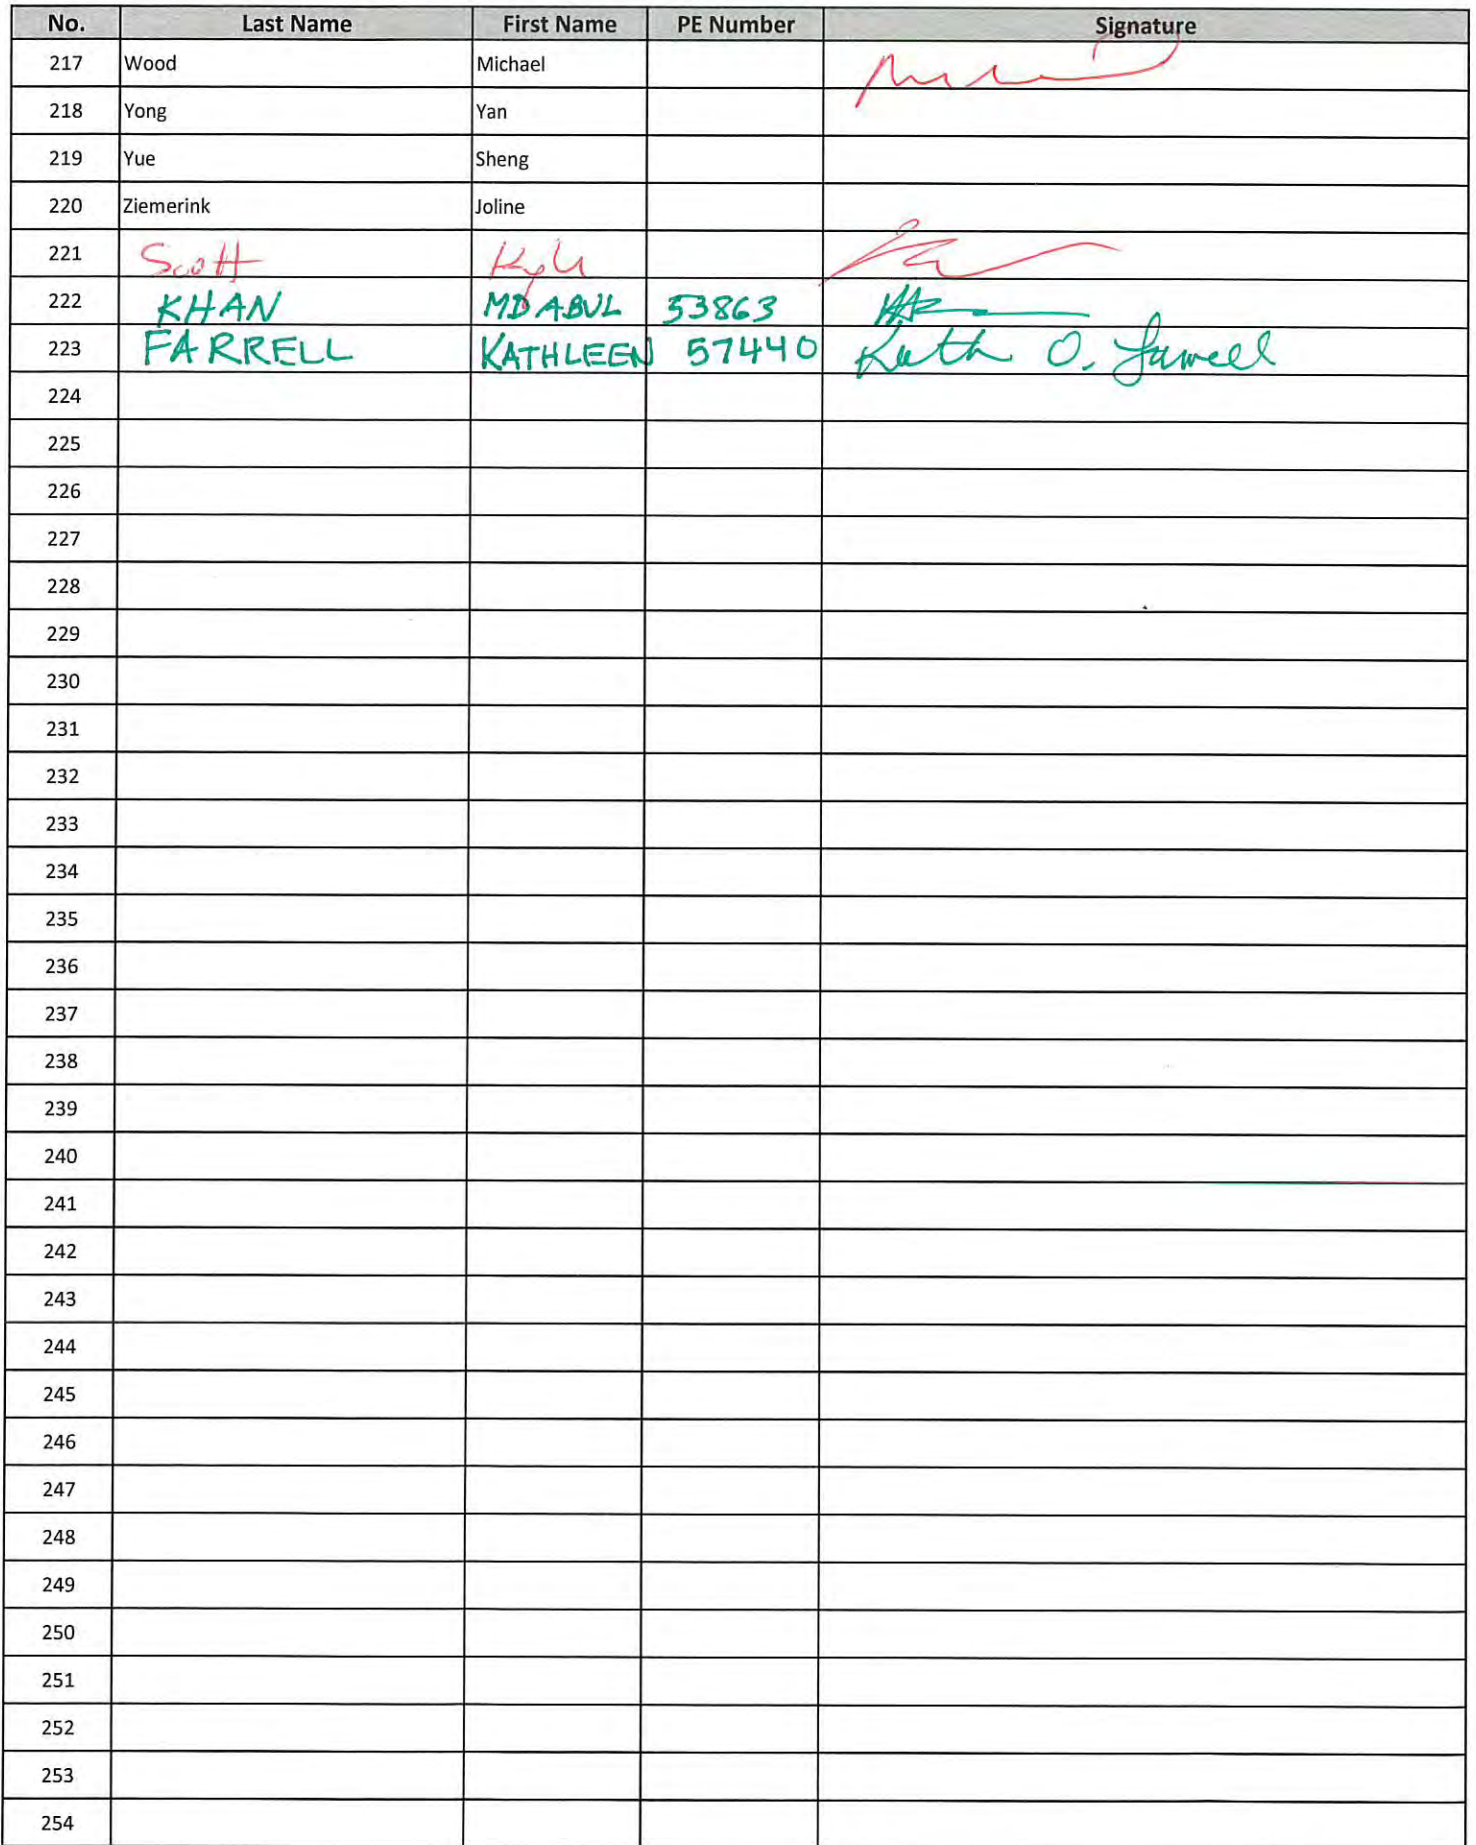 No. Last Name First Name PE Number Signature
217 Wood Michael
218 Yong Yan
219 Yue Sheng
220 Ziemerink Joline
221 Scott Kyle
222 KHAN MD ABUL 53863
223 FARRELL KATHLEEN 57440 Kath O. Farrell
224
225
226
227
228
229
230
231
232
233
234
235
236
237
238
239
240
241
242
243
244
245
246
247
248
249
250
251
252
253
254